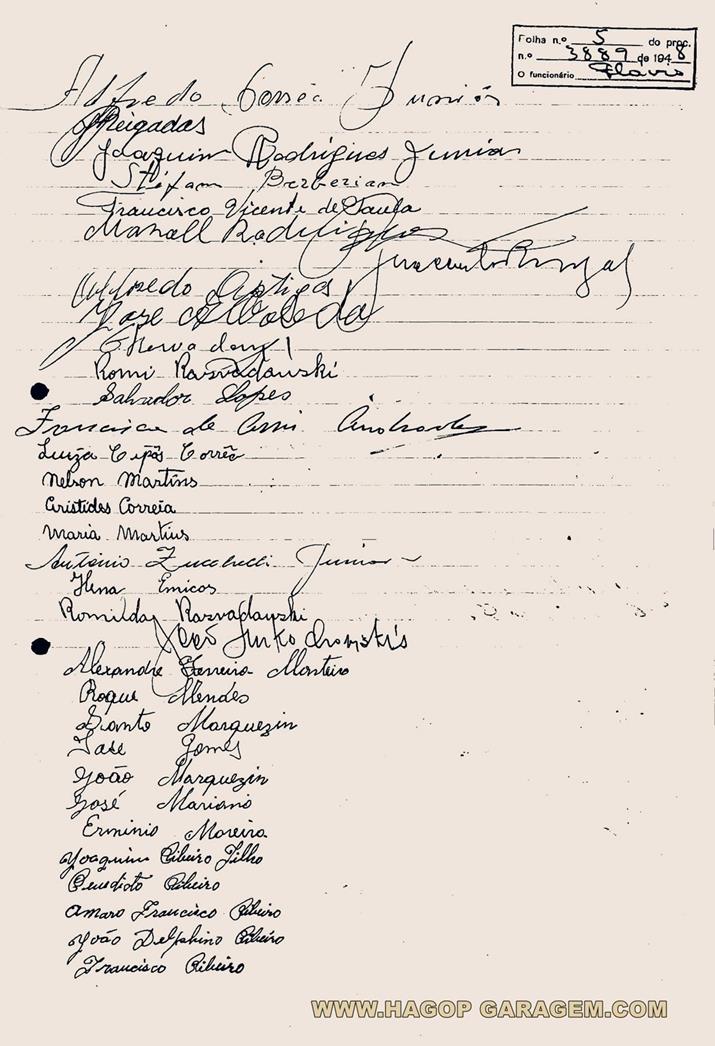 Folha n.º 5 do proc.
n.º 3889 de 1948
O funcionário Flavio
Alfredo Corrêa Junior
Joaquim Rodrigues Junior
Stefam Berberian
Francisco Vicente de Paula
Manoell Rodrigues
Alfredo
Jose
Romi Razvadauski
Salvador Lopes
Francisco de Andrade
Luiza Corrêa
Nelson Martins
Aristides Correia
Maria Martins
Antonio Zucchelli Junior
Hena Emicos
Romilda Razvadauski
Alexandre Ferreira Monteiro
Roque Mendes
Santo Marquezin
Jose Gomes
João Marquezin
José Mariano
Erminio Moreira
Joaquim Ribeiro Filho
Benedisto Ribeiro
Amaro Francisco Ribeiro
João Delphino Ribeiro
Francisco Ribeiro
WWW.HAGOP GARAGEM.COM